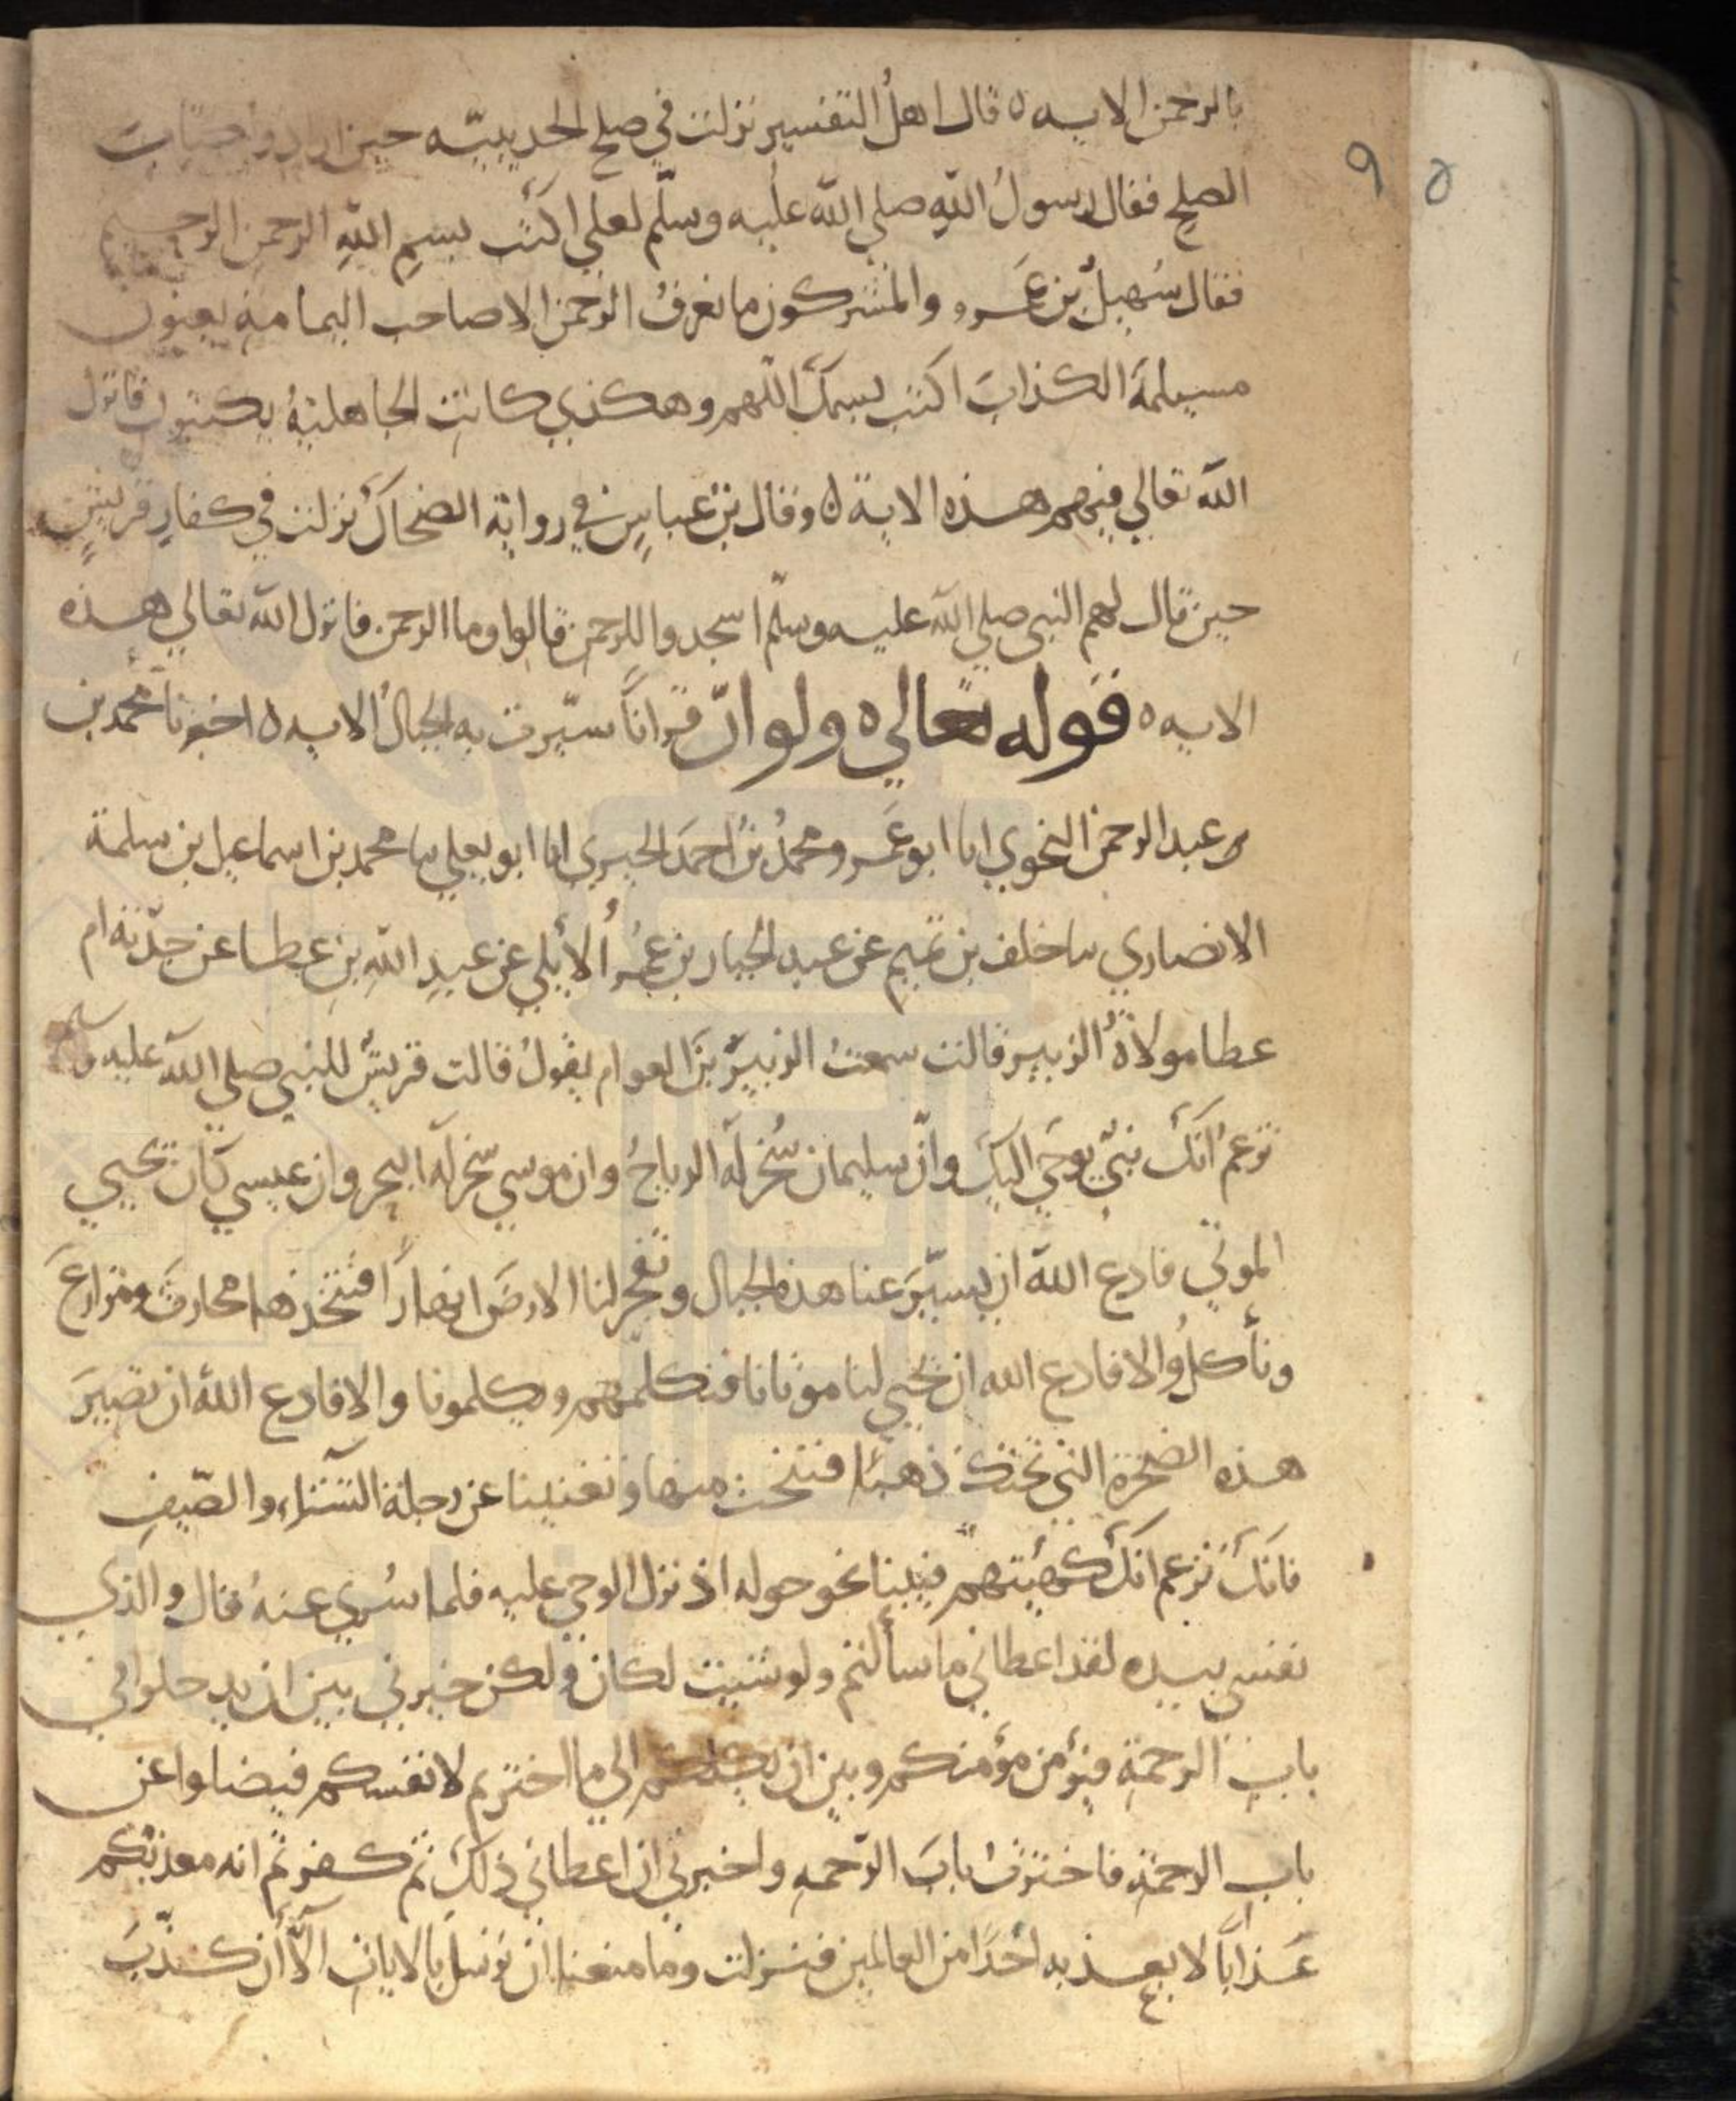 بالرحمن الايه ه قال اهلُ التفسير نزلت في صلح الحديبيّه حين ارادوا كتابَ
الصلح فقال رسولُ اللهِ صلي الله عليه وسلّم لعلي اكتب بسمِ اللهِ الرحمن الرحيم
فقال سُهيلُ بن عَمرو والمشركون ما نعرفُ الرحمن الا صاحب اليمامة يعنون
مسيلمةَ الكذابَ اكتب بسمك اللهم وهكذي كانتِ الجاهليةُ يكتبون فانزل
الله تعالي فيهم هذه الاية ه وقال بن عباسٍ في رواية الضحاك نزلت في كفارِ قريشٍ
حين قال لهم النبي صلي الله عليه وسلّم اسجدوا للرحمن قالوا وما الرحمن فانزل الله تعالي هذه
الايه ه قوله تعالي ه ولو انّ قراناً سيّرت به الجبالُ الايه ه اخبرنا محمد بن
عبد الرحمن النحوي انا ابو عَمرو محمدُ بنُ احمدَ الحيري انا ابو يعلي نا محمد بن اسماعيل بن سلمة
الانصاري نا خلف بن تميم عن عبد الجبار بن عُمر الأيلي عن عبدِ اللهِ بن عطا عن جدّته ام
عطا مولاةُ الزبير قالت سمعتُ الزبيرَ بنَ العوام يقولُ قالت قريشٌ للنبي صلي الله عليه وسلم
تزعمُ انك نبيّ يوحَي اليكَ وانّ سليمان سُخر له الرياحُ وان موسي سُخر له البحر وان عيسي كان يحيي
الموتي فادع الله ان يسيّرَ عنا هذه الجبال وتفجر لنا الارضَ انهاراً فنتخذها محارثَ ومزارعَ
ونأكلُ والا فادع الله ان يحيي لنا موتانا فنكلمهم ويكلمونا والا فادع الله ان تصيرَ
هذه الصخرة التي تحتك ذهباً فننحت منها وتغنينا عن رحلة الشتاء والصّيفِ
فانك تزعم انك كهيئتهم فبينا نحو حوله اذ نزل الوحي عليه فلما سُري عنهُ قال والذي
نفسي بيده لقد اعطاني ما سألتم ولو شئيت لكان ولكن خيرني بين ان يدخلوا في
بابِ الرحمةِ فيؤمن مؤمنكم وبين ان يكلكم الي ما اخترتم لانفسكم فيضلوا عن
باب الرحمةِ فاخترتُ بابَ الرّحمه واخبرني ان اعطاني ذلك ثم كفرتم انه معذبكم
عَذاباً لا يعذبه احداً من العالمين فنزلت وما منعنا ان نرسلَ بالاياتِ الّا أن كذّبَ